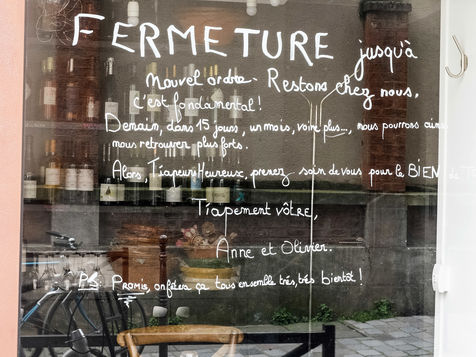 FERMETURE jusqu'à
Nouvel ordre. Restons chez nous,
C'est fondamental!
Demain, dans 15 jours, un mois, voire plus..., nous pourrons ains
nous retrouver plus forts.
Alors, Tiapeurs Heureux, prenez soin de vous pour le BIEN de T
Tiapement vôtre,
Anne et Olivier.
PS: PROMIS, on fêtera ça tous ensemble très, très bientôt!